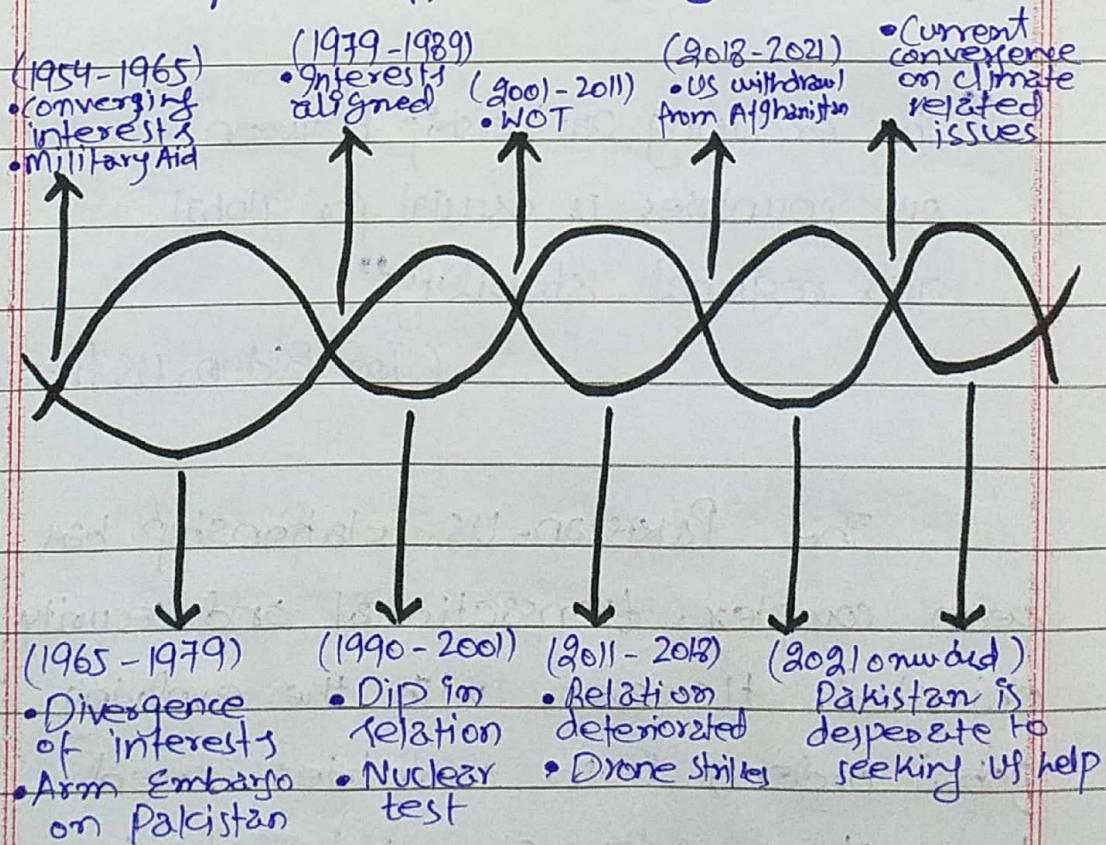 (1954-1965)
• Converging
interests
• Military Aid
(1979-1989)
• Interests
aligned
(2001-2011)
• WOT
(2018-2021)
• US withdrawl
from Afghanistan
• Current
convergence
on climate
related
issues
(1965-1979)
• Divergence
of interests
• Arm Embargo
on Pakistan
(1990-2001)
• Dip in
relation
• Nuclear
test
(2011-2018)
• Relation
deteriorated
• Drone strikes
(2021 onward)
Pakistan is
desperate to
seeking US help